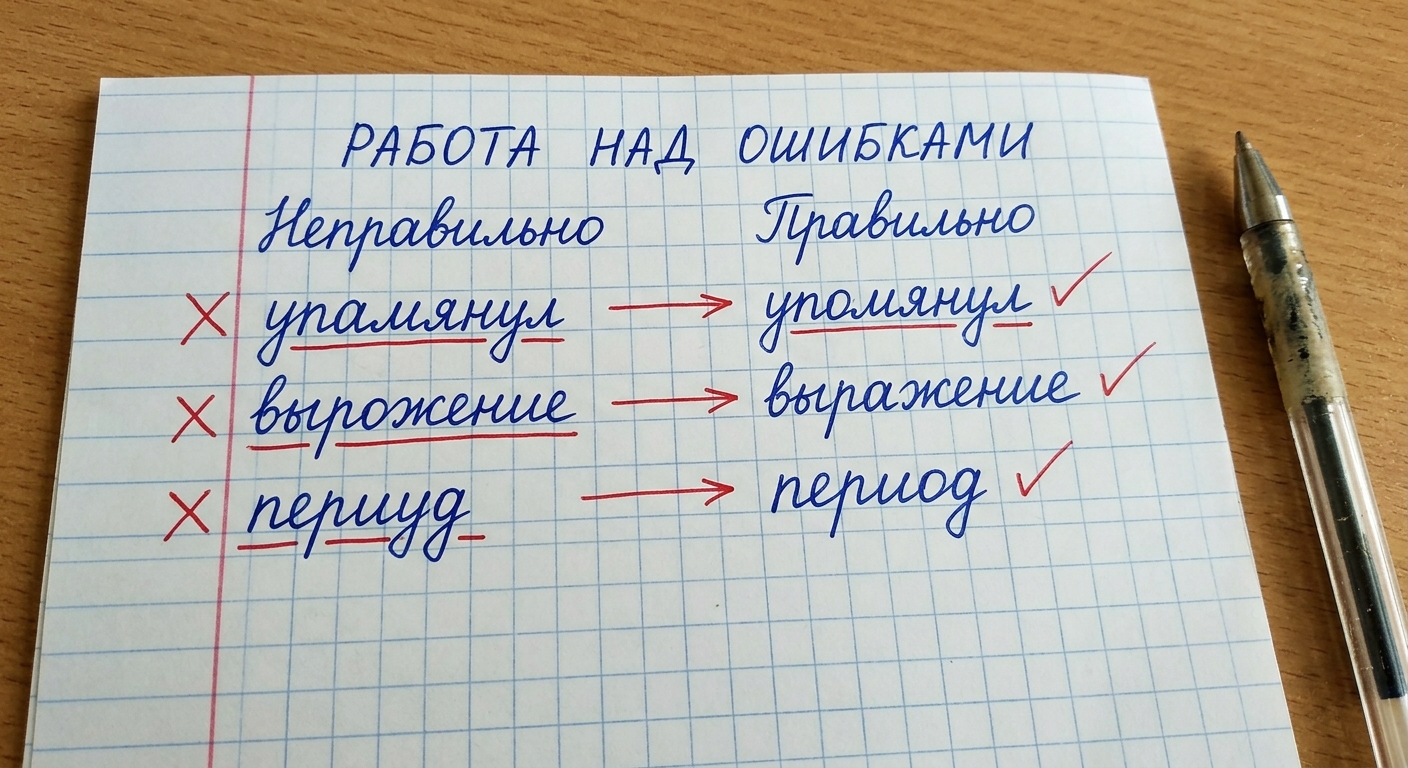 РАБОТА НАД ОШИБКАМИ
Неправильно Правильно
упамянул упомянул
вырожение выражение
периуд период